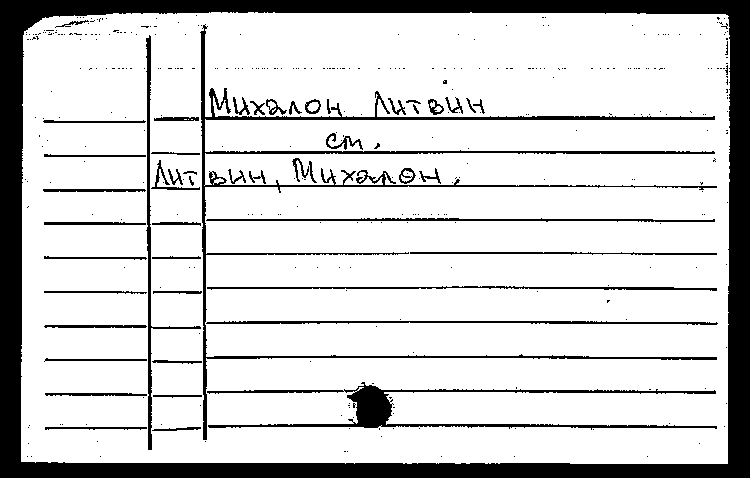 Михалон Литвин
см.
Литвин, Михалон.